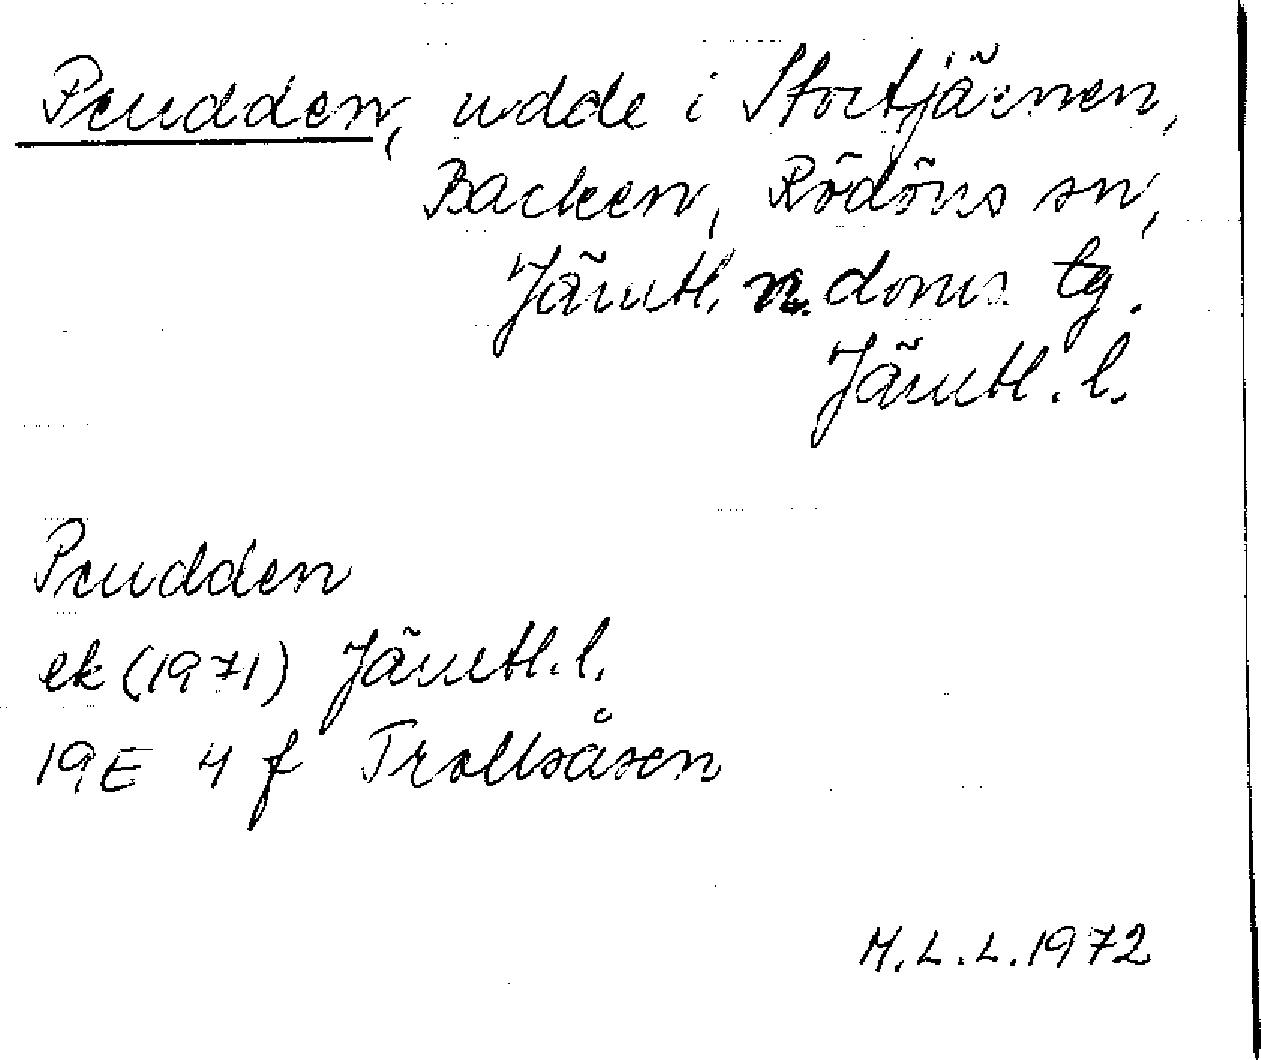 Prudden, udde i Stortjärnen,
Backen, Rödöns sn,
Jämtl. n. doms. tg.
Jämtl. l.
Prudden
ek (1971) Jämtl. l.
19E 4 f Trollsåsen
M.L.L. 1972